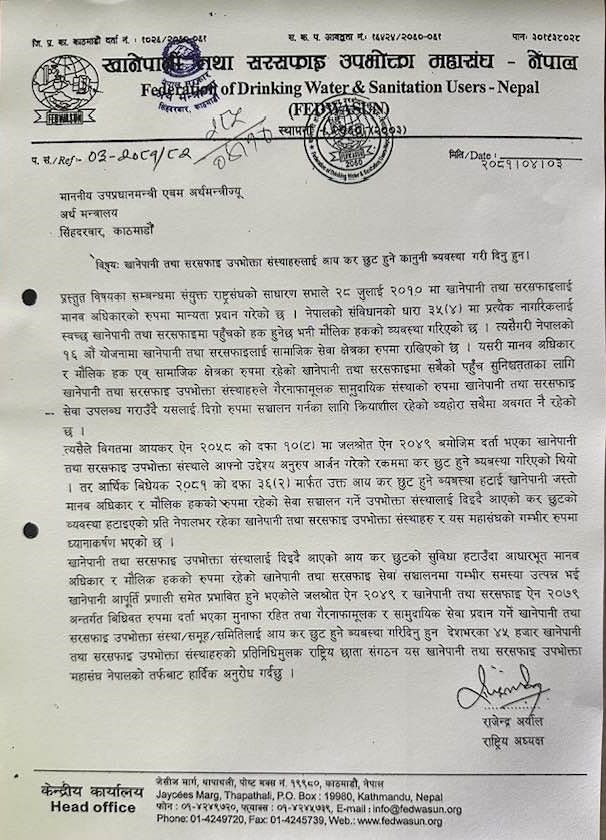 जि. प्र. का. काठमाडौं दर्ता नं. : १०२६/२०६०-०६१
स. क. प. आवद्धता नं.: १४४२४/२०६०-०६१
पान: ३०१९३८०२८
खानेपानी तथा सरसफाइ उपभोक्ता महासंघ - नेपाल
Federation of Drinking Water & Sanitation Users - Nepal
(FEDWASUN)
FEDWASUN
सिंहदरवार, काठमाडौं
स्थापना २०६० (२००३)
प. सं./Ref :- 03-२०८१/८२
मिति/Date :
२०८१।०४।०३
माननीय उपप्रधानमन्त्री एबम अर्थमन्त्रीज्यू
अर्थ मन्त्रालय
सिंहदरबार, काठमाडौं
बिषय: खानेपानी तथा सरसफाइ उपभोक्ता संस्थाहरुलाई आय कर छुट हुने कानुनी ब्यवस्था गरी दिनु हुन।
प्रस्तुत विषयका सम्बन्धमा संयुक्त राष्ट्रसंघको साधारण सभाले २८ जुलाई २०१० मा खानेपानी तथा सरसफाइलाई
मानव अधिकारको रुपमा मान्यता प्रदान गरेको छ । नेपालको संविधानको धारा ३५(४) मा प्रत्येक नागरिकलाई
स्वच्छ खानेपानी तथा सरसफाइमा पहुँचको हक हुनेछ भनी मौलिक हकको ब्यवस्था गरिएको छ । त्यसैगरी नेपालको
१६ औं योजनामा खानेपानी तथा सरसफाइलाई सामाजिक सेवा क्षेत्रका रुपमा राखिएको छ । यसरी मानव अधिकार
र मौलिक हक एव् सामाजिक क्षेत्रका रुपमा रहेको खानेपानी तथा सरसफाइमा सबैको पहुँच सुनिश्चतताका लागि
खानेपानी तथा सरसफाइ उपभोक्ता संस्थाहरुले गैरनाफामूलक सामुदायिक संस्थाको रुपमा खानेपानी तथा सरसफाइ
सेवा उपलब्ध गराउँदै यसलाई दिगो रुपमा सञ्चालन गर्नका लागि क्रियाशील रहेको ब्यहोरा सबैमा अवगत नै रहेको
छ ।
त्यसैले विगतमा आयकर ऐन २०५८ को दफा १०(ट) मा जलश्रोत ऐन २०४९ बमोजिम दर्ता भएका खानेपानी
तथा सरसफाइ उपभोक्ता संस्थाले आफ्नो उद्देश्य अनुरुप आर्जन गरेको रकममा कर छुट हुने ब्यवस्था गरिएको थियो
। तर आर्थिक बिधेयक २०८१ को दफा ३६(२) मार्फत उक्त आय कर छुट हुने ब्यवस्था हटाई खानेपानी जस्तो
मानब अधिकार र मौलिक हकको रुपमा रहेको सेवा सञ्चालन गर्ने उपभोक्ता संस्थालाई दिइदै आएको कर छुटको
ब्यवस्था हटाइएको प्रति नेपालभर रहेका खानेपानी तथा सरसफाइ उपभोक्ता संस्थाहरु र यस महासंघको गम्भीर रुपमा
ध्यानाकर्षण भएको छ ।
खानेपानी तथा सरसफाइ उपभोक्ता संस्थालाई दिइदै आएको आय कर छुटको सुविधा हटाउँदा आधारभूत मानव
अधिकार र मौलिक हकको रुपमा रहेको खानेपानी तथा सरसफाइ सेवा सञ्चालनमा गम्भीर समस्या उत्पन्न भई
खानेपानी आपूर्ति प्रणाली समेत प्रभावित हुने भएकोले जलश्रोत ऐन २०४९ र खानेपानी तथा सरसफाइ ऐन २०७९
अन्तर्गत बिधिवत रुपमा दर्ता भएका मुनाफा रहित तथा गैरनाफामूलक र सामुदायिक सेवा प्रदान गर्ने खानेपानी तथा
सरसफाइ उपभोक्ता संस्था/समूह/समितिलाई आय कर छुट हुने ब्यवस्था गरिदिनु हुन देशभरका ४५ हजार खानेपानी
तथा सरसफाइ उपभोक्ता संस्थाहरुको प्रतिनिधिमुलक राष्ट्रिय छाता संगठन यस खानेपानी तथा सरसफाइ उपभोक्ता
महासंघ नेपालको तर्फबाट हार्दिक अनुरोध गर्दछु ।
राजेन्द्र अर्याल
राष्ट्रिय अध्यक्ष
केन्द्रीय कार्यालय
Head office
जेसीज मार्ग, थापाथली, पोष्ट बक्स नं. १९९८०, काठमाडौं, नेपाल
Jaycees Marg, Thapathali, P.O. Box : 19980, Kathmandu, Nepal
फोन : ०१-४२४९७२०, फ्याक्स : ०१-४२४५७३९, E-mail : info@fedwasun.org
Phone: 01-4249720, Fax: 01-4245739, Web.: www.fedwasun.org